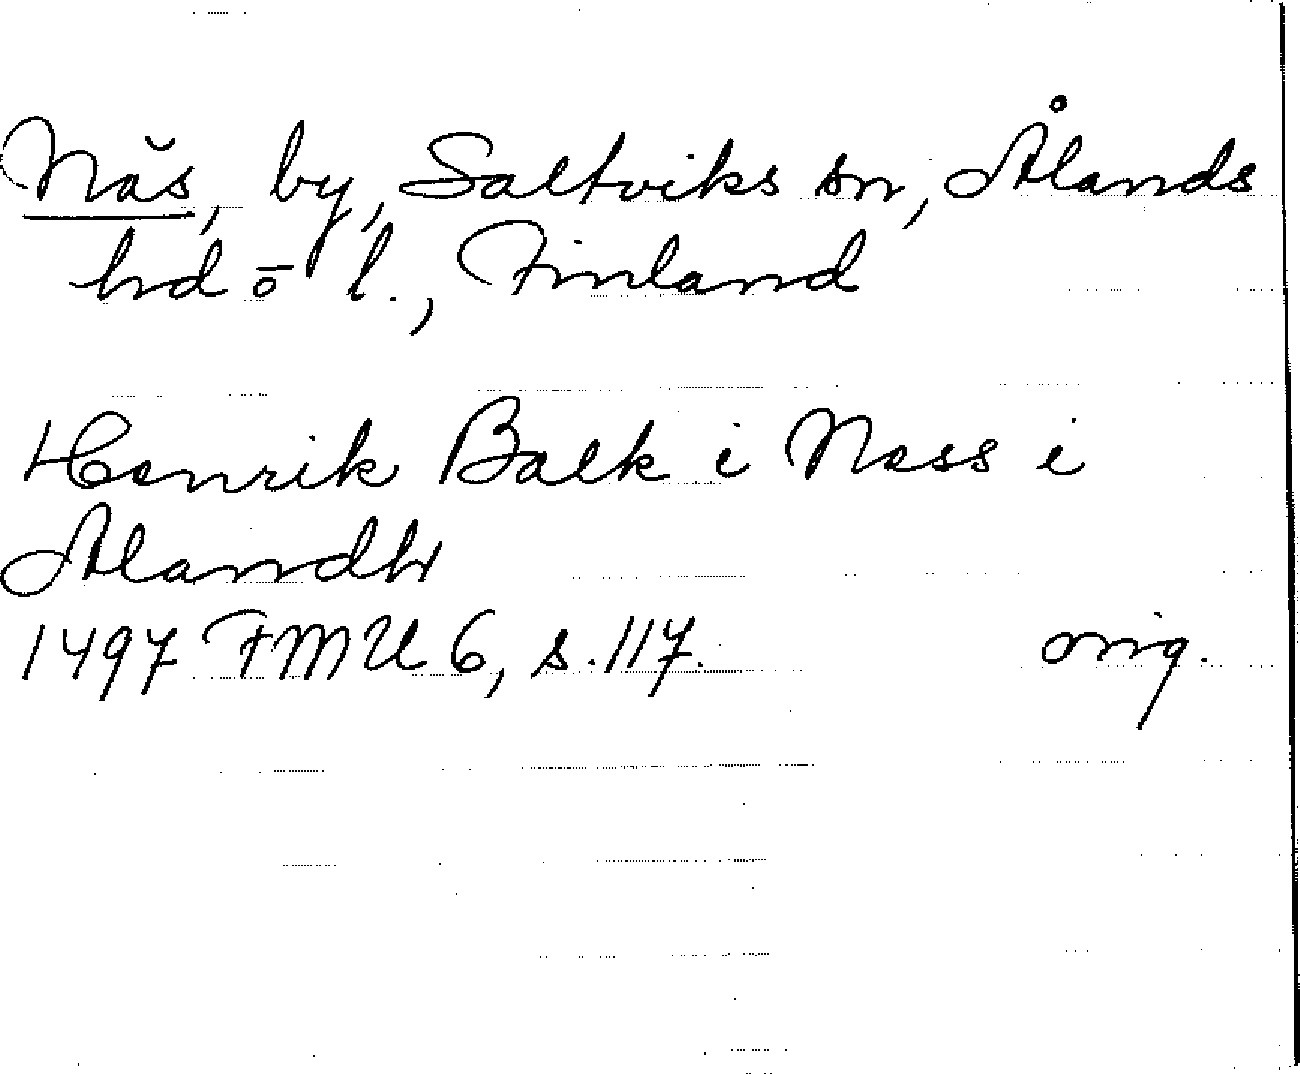 Näs, by, Saltviks sn, Ålands
hd o l., Finland
Henrik Balk i Næss i
Alandh
1497 FMU 6, s. 117. orig.